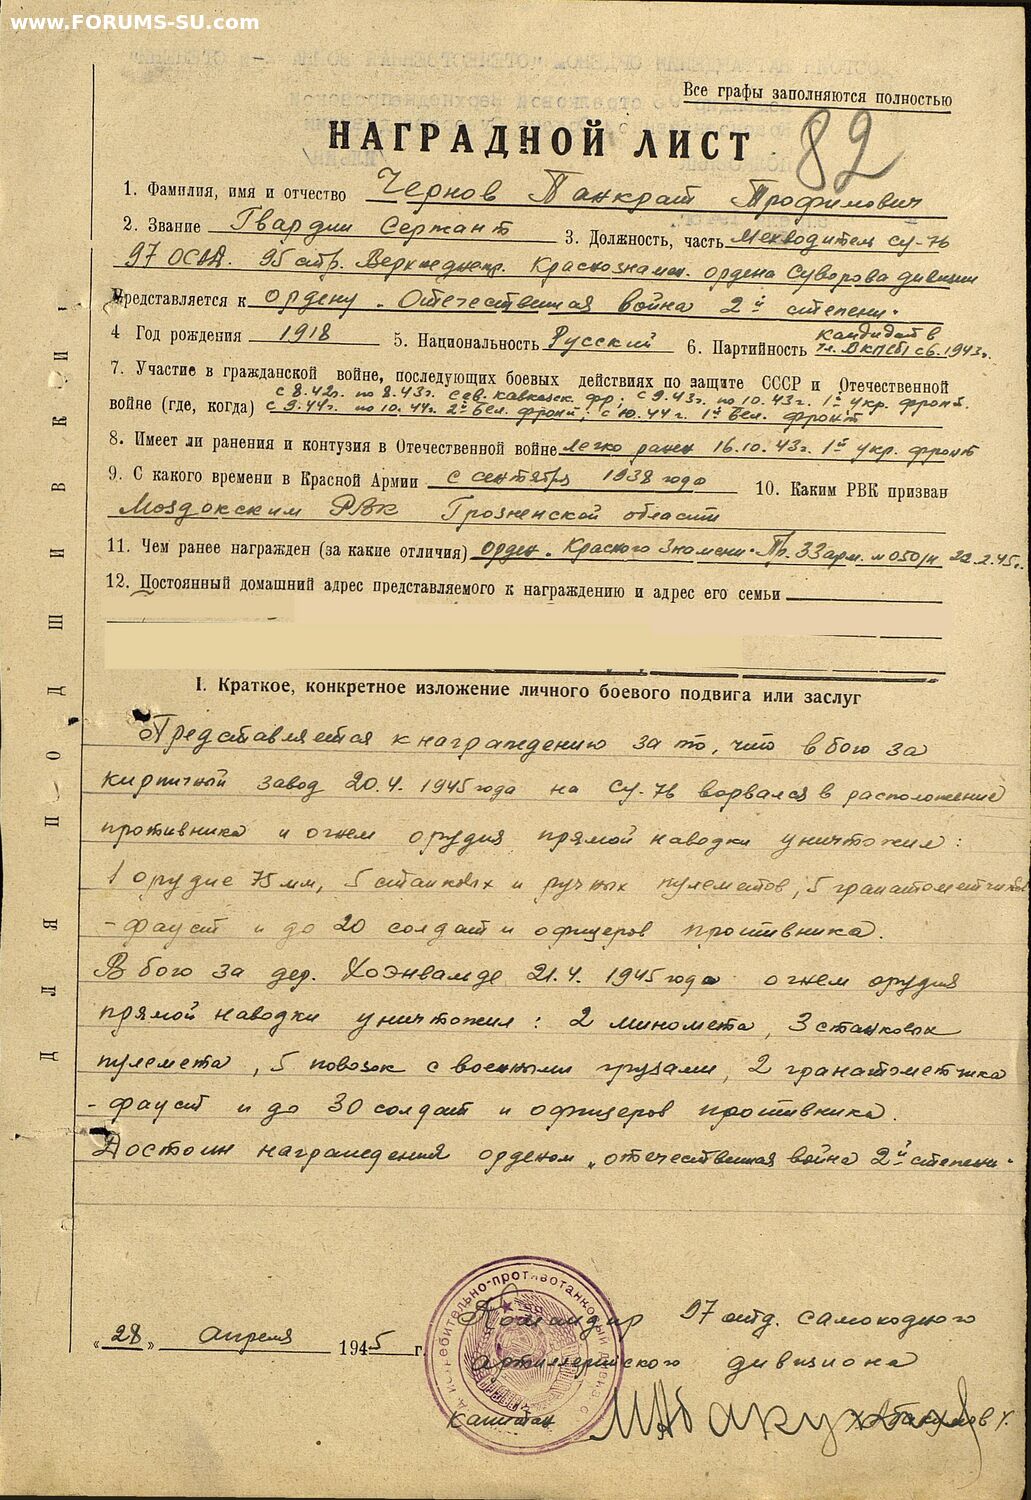 www.FORUMS-SU.com
Все графы заполняются полностью
НАГРАДНОЙ ЛИСТ 82
1. Фамилия, имя и отчество Чернов Панкрат Трофимович
2. Звание Гвардии Сержант 3. Должность, часть Мехводитель СУ-76
97 ОСАД. 95 стр. Верхнеднепр. Краснознамен. ордена Суворова дивизии
Представляется к ордену „Отечественная война 2й степени"
4 Год рождения 1918 5. Национальность Русский 6. Партийность кандидат в
чл. ВКП(б) с 6. 1943г.
7. Участие в гражданской войне, последующих боевых действиях по защите СССР и Отечественной
с 8.42г. по 8.43г. сев. кавказск. фр; с 9.43г. по 10.43г. 1й укр. фронт.
войне (где, когда) с 9.44г. по 10.44г. 2й Бел. фронт, с 10.44г. 1й Бел. фронт
8. Имеет ли ранения и контузия в Отечественной войне легко ранен 16.10.43г. 1й укр. фронт
9. С какого времени в Красной Армии с сентября 1938 года 10. Каким РВК призван
Моздокским РВК Грозненской области
11. Чем ранее награжден (за какие отличия) орден „Красного Знамени" Пр. 33 арм. н 050/н 22.2.45г.
12. Постоянный домашний адрес представляемого к награждению и адрес его семьи
I. Краткое, конкретное изложение личного боевого подвига или заслуг
Представляется к награждению за то, что в бою за
кирпичный завод 20.4.1945 года на СУ-76 ворвался в расположение
противника и огнем орудия прямой наводки уничтожил:
1 орудие 75 мм, 5 станковых и ручных пулеметов, 5 гранатометчиков
- фауст и до 20 солдат и офицеров противника.
В бою за дер. Хоэнвальде 21.4.1945 года огнем орудия
прямой наводки уничтожил: 2 миномета, 3 станковых
пулемета, 5 повозок с военными грузами, 2 гранатометчика
- фауст и до 30 солдат и офицеров противника.
Достоин награждения орденом „отечественная война 2й степени"
Командир 97 отд. самоходного
„28" апреля 1945 г.
артиллерийского дивизиона
капитан Абакумов
ДЛЯ ПОДШИВКИ